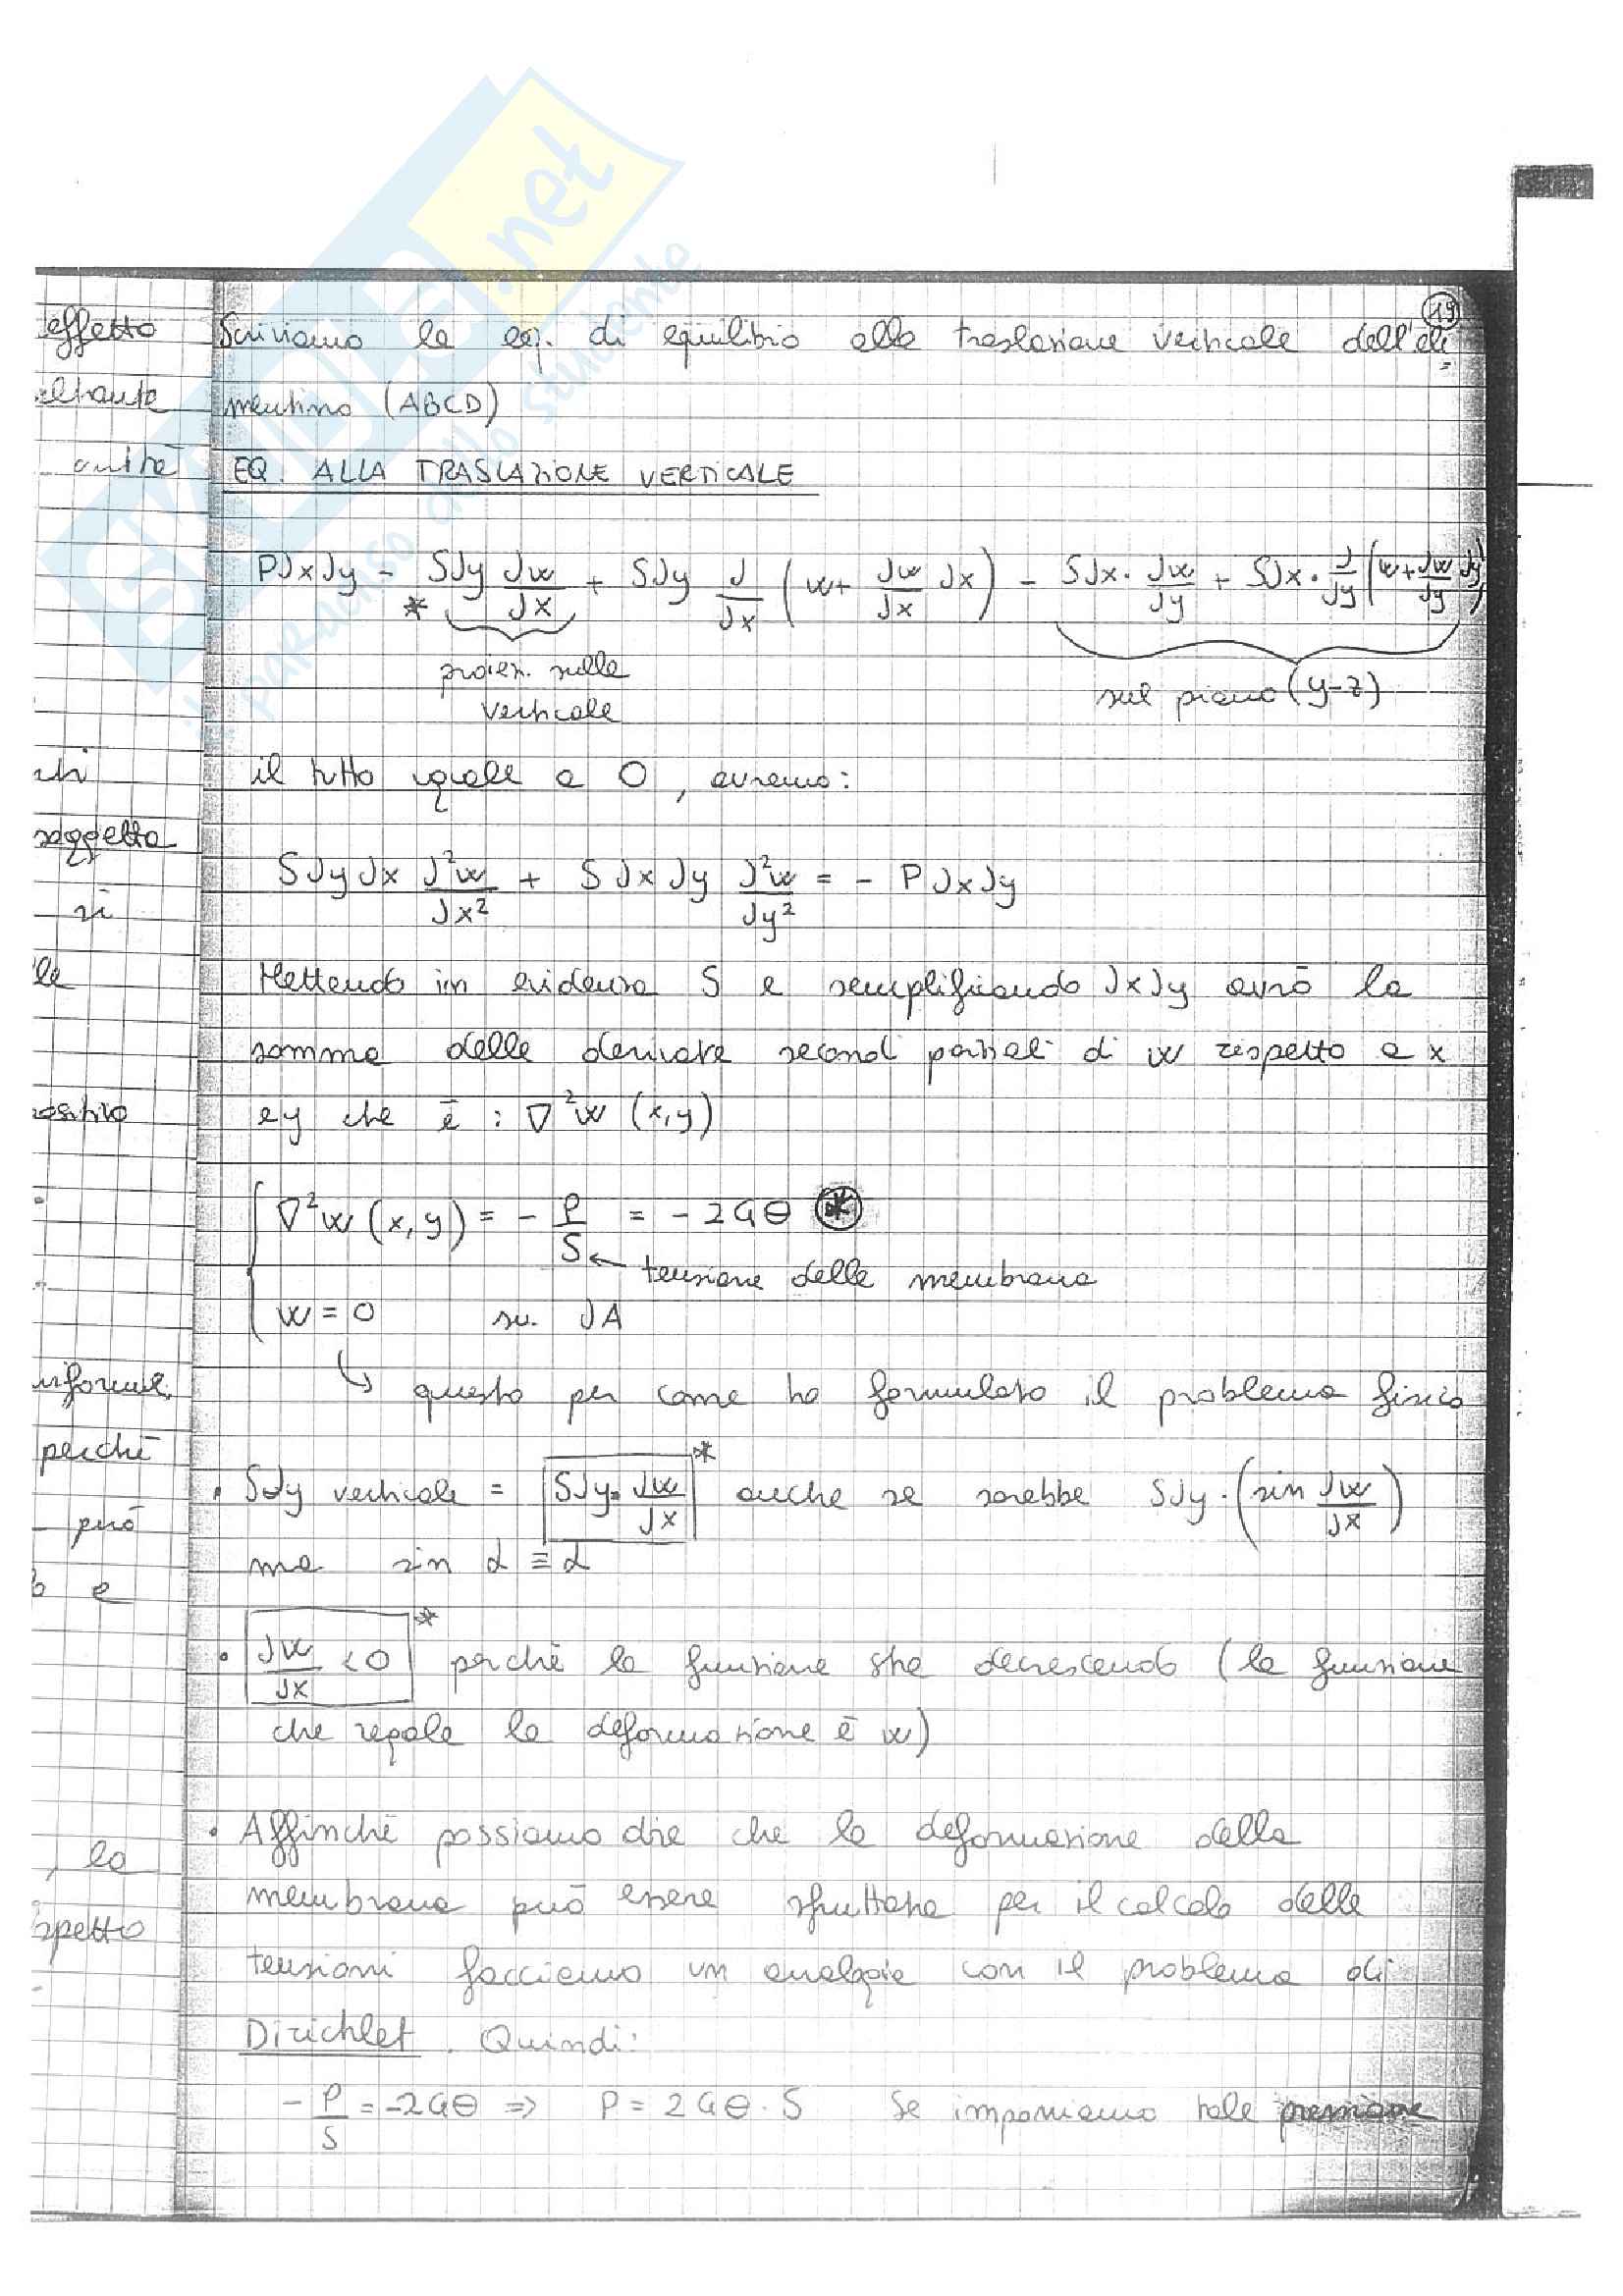 19
effetto
ci
soggetta
si
le
perché
può
e
, lo
spetto
Scriviamo le eq. di equilibrio alla traslazione verticale dell'ele
mentino (ABCD)
EQ. ALLA TRASLAZIONE VERTICALE
P∂x∂y - S∂y ∂w/∂x + S∂y ∂/∂x (w + ∂w/∂x ∂x) - S∂x · ∂w/∂y + S∂x · ∂/∂y (w + ∂w/∂y ∂y)
*
proiez. sulla
verticale
sul piano (y-z)
il tutto uguale a 0, avremo:
S∂y∂x ∂²w/∂x² + S∂x∂y ∂²w/∂y² = - P∂x∂y
Mettendo in evidenza S e semplificando ∂x∂y avrò la
somma delle derivate secondi parziali di w rispetto a x
e y che è : ∇²w (x,y)
∇²w (x,y) = - P/S = - 2Gθ *
← tensione della membrana
w = 0 su ∂A
↳ questo per come ho formulato il problema fisico
• S∂y verticale = S∂y · ∂w/∂x * anche se sarebbe S∂y · (sin ∂w/∂x)
ma sin α ≡ α
• ∂w/∂x < 0 * perchè la funzione sta decrescendo (la funzione
che regola la deformazione è w)
• Affinchè possiamo dire che la deformazione della
membrana può essere sfruttata per il calcolo delle
tensioni facciamo un analogia con il problema di
Dirichlet. Quindi:
- P/S = -2Gθ => P = 2Gθ · S Se imponiamo tale pressione
SKUOLA.net
il paradiso dello studente